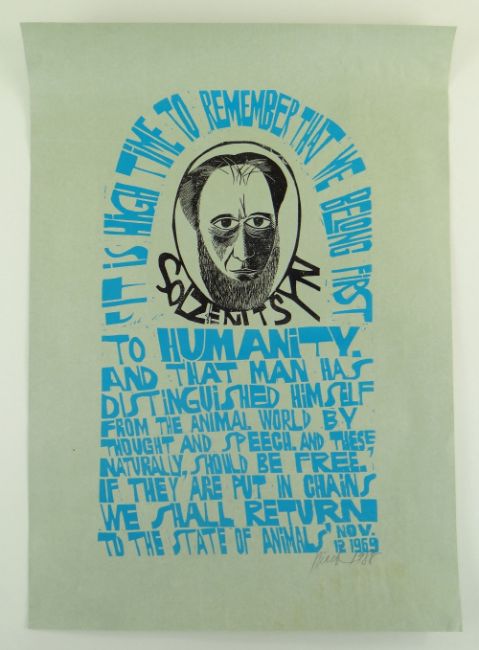 "IT IS HIGH TIME TO REMEMBER THAT WE BELONG FIRST
SOLZENITSYN
TO HUMANITY.
AND THAT MAN HAS
DISTINGUISHED HIMSELF
FROM THE ANIMAL WORLD BY
THOUGHT AND SPEECH. AND THESE,
NATURALLY, SHOULD BE FREE.
IF THEY ARE PUT IN CHAINS
WE SHALL RETURN
TO THE STATE OF ANIMALS" NOV.
12 1969